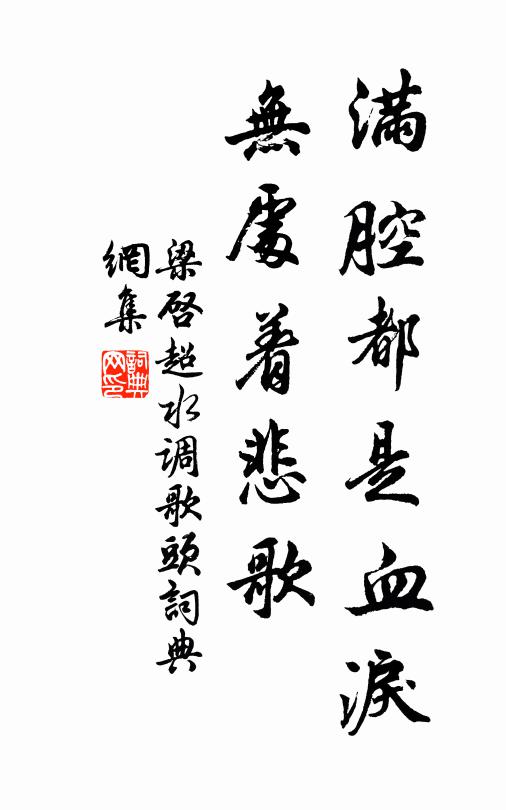 滿腔都是血淚
無處着悲歌
梁啓超水调歌頭詞典
網集
詞典
网印